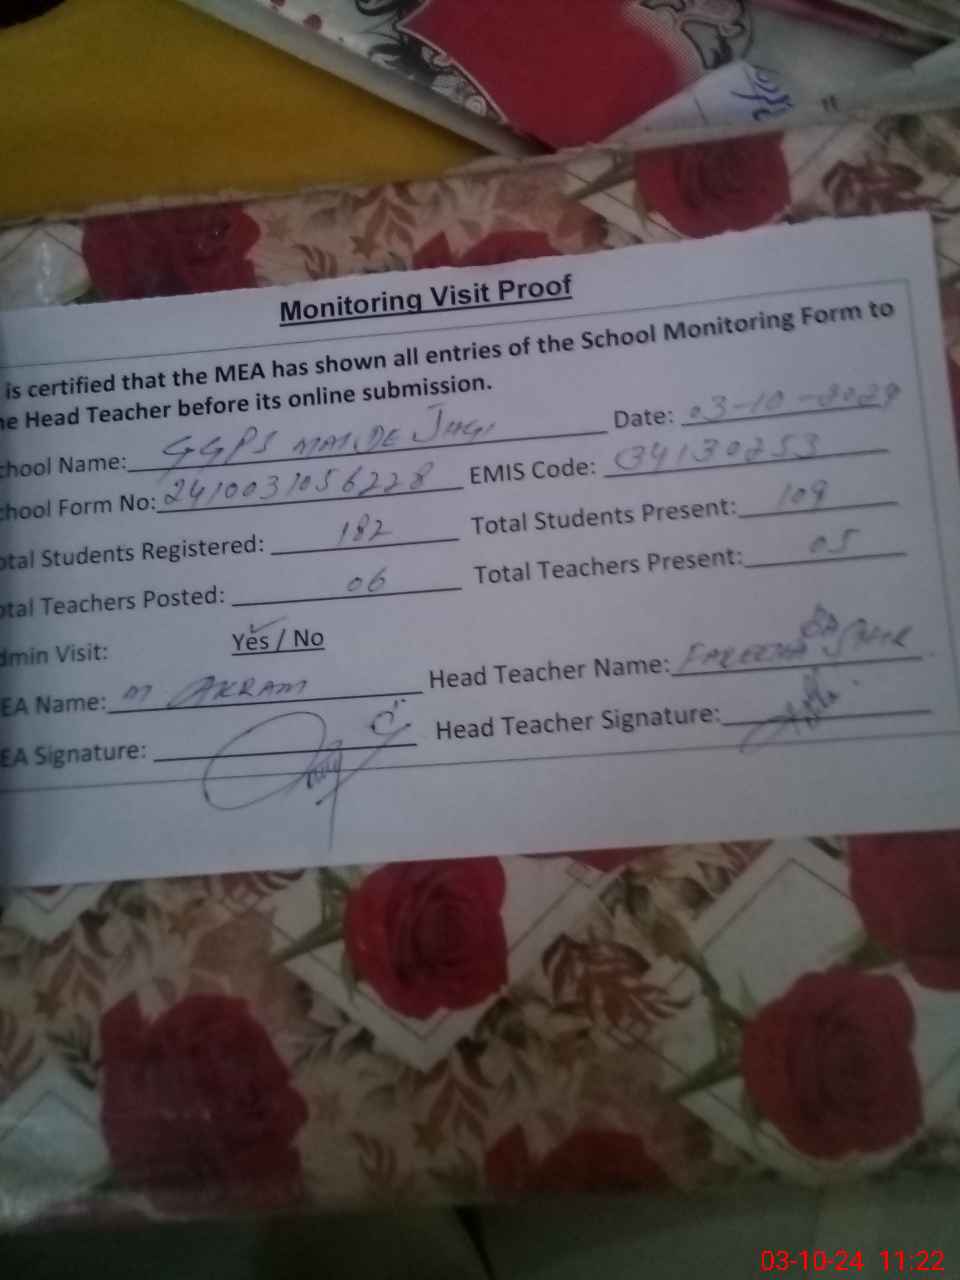 Monitoring Visit Proof
is certified that the MEA has shown all entries of the School Monitoring Form to
he Head Teacher before its online submission.
chool Name: GGPS Date: 03-10-2024
chool Form No: 2410031056228 EMIS Code: 34130253
otal Students Registered: 182 Total Students Present: 109
otal Teachers Posted: 06 Total Teachers Present: 05
dmin Visit: Yes / No
EA Name: M AKRAM Head Teacher Name: FAREEHA
EA Signature: Head Teacher Signature:
03-10-24 11:22